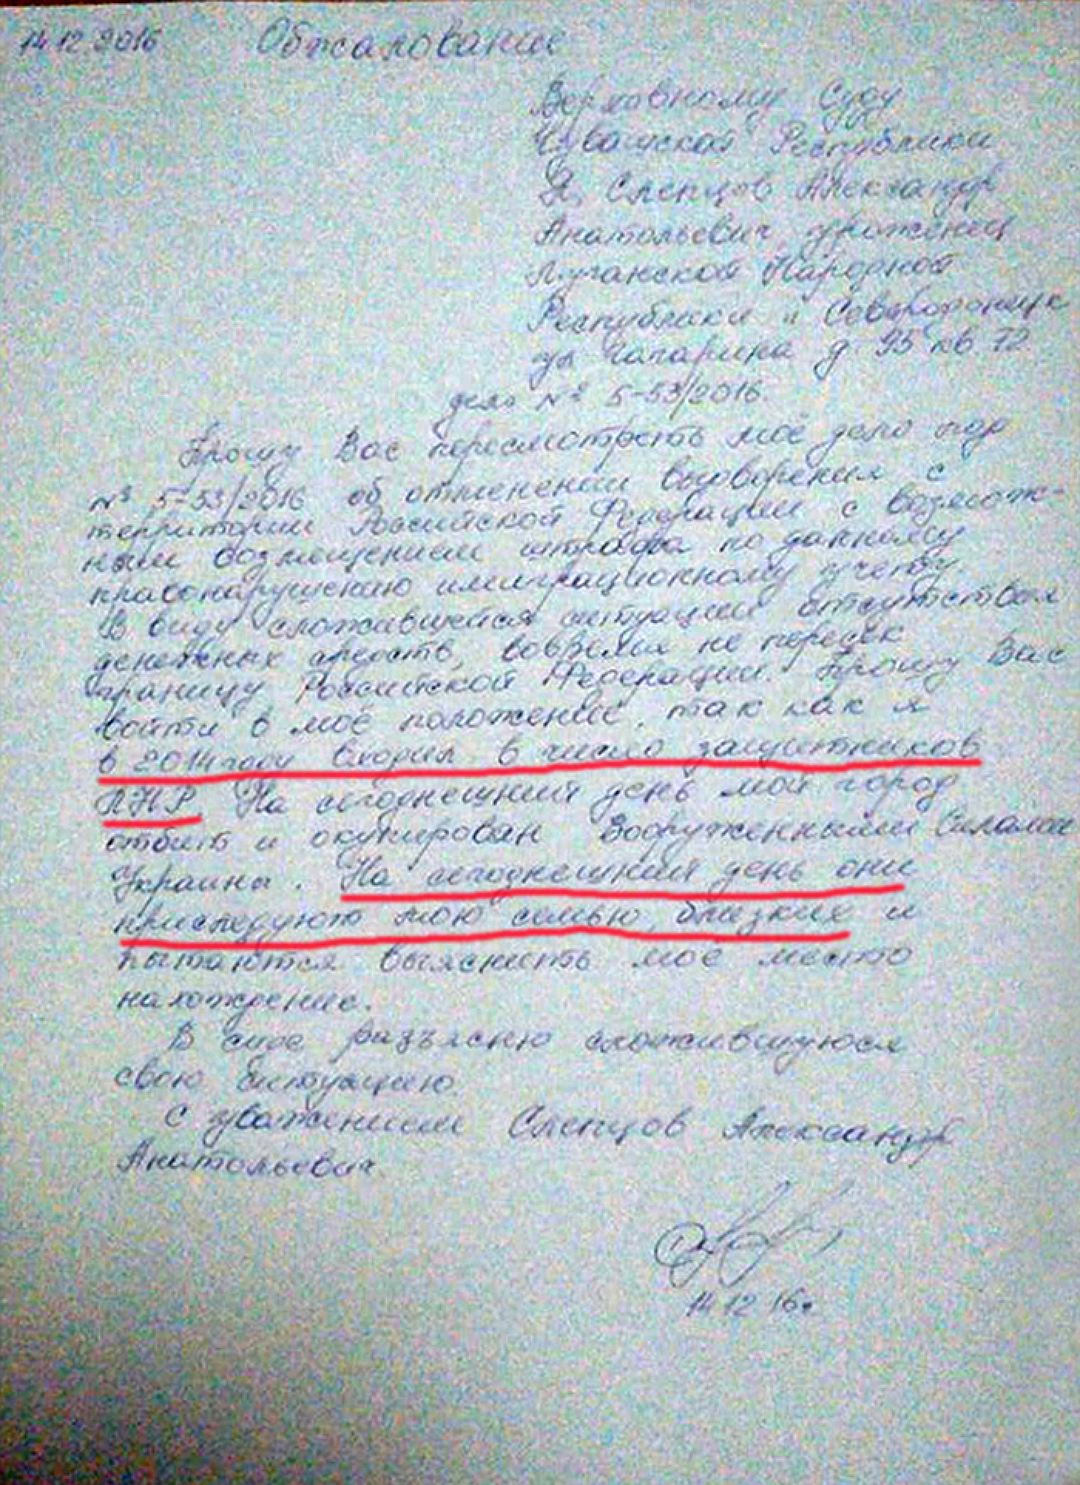 14.12.2016 Обжалование
Верховному Суду
Чувашской Республики
Я, Слепцов Александр
Анатольевич, уроженец
Луганской Народной
Республики г. Северодонецк
ул Гагарина д. 95 кв. 72
дело № 5-53/2016.
Прошу Вас пересмотреть моё дело под
№ 5-53/2016 об отменении выдворения с
территории Российской Федерации с возмож-
ным возмещением штрафа по данному
правонарушению имиграционному учету.
В виду сложившейся ситуации отсутствия
денежных средств, вовремя не пересек
границу Российской Федерации. Прошу Вас
войти в моё положение, так как я
в 2014 году входил в число защитников
ЛНР. На сегоднешний день мой город
отбит и окупирован Вооруженными Силами
Украины. На сегоднешний день они
приследуют мою семью, близких и
пытаются выяснить моё место
нахождение.
В суде разъясню сложившуюся
свою ситуацию.
С уважением Слепцов Александр
Анатольевич.
14.12.16г.